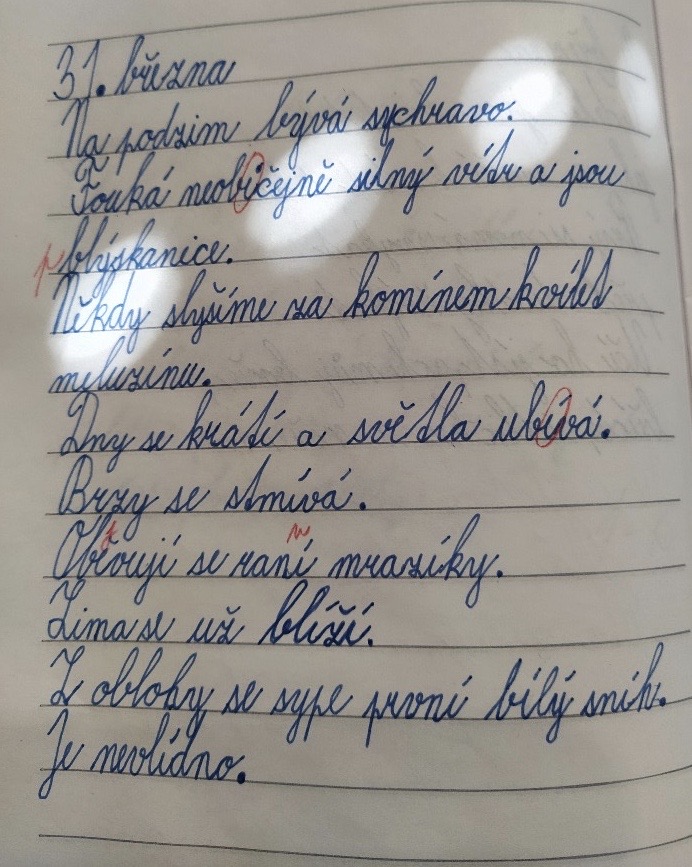 31. března
Na podzim bývá sychravo.
Fouká neobičejně silný vítr a jsou
p blýskanice.
Někdy slyšíme za komínem kvílet
meluzínu.
Dny se krátí a světla ubívá.
Brzy se stmívá.
Obřvují se raní mrazíky.
Zima se už blíží.
Z oblohy se sype první bílý sníh.
Je nevlídno.